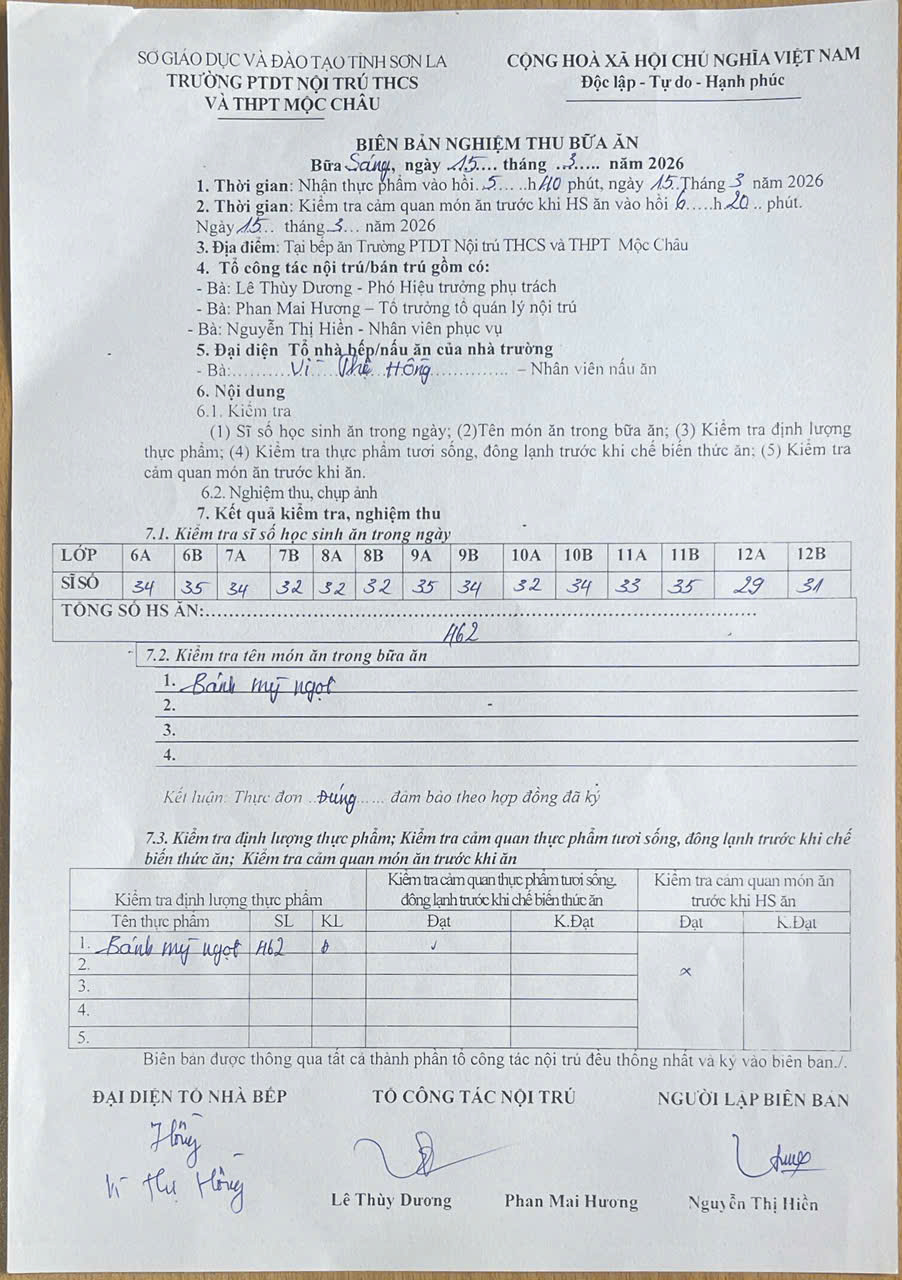 SỞ GIÁO DỤC VÀ ĐÀO TẠO TỈNH SƠN LA
TRƯỜNG PTDT NỘI TRÚ THCS
VÀ THPT MỘC CHÂU
CỘNG HOÀ XÃ HỘI CHỦ NGHĨA VIỆT NAM
Độc lập - Tự do - Hạnh phúc
BIÊN BẢN NGHIỆM THU BỮA ĂN
Bữa Sáng, ngày 15.... tháng ..3..... năm 2026
1. Thời gian: Nhận thực phẩm vào hồi 5.....h 40 phút, ngày 15 Tháng 3 năm 2026
2. Thời gian: Kiểm tra cảm quan món ăn trước khi HS ăn vào hồi 6.....h 20.. phút.
Ngày 15... tháng 3... năm 2026
3. Địa điểm: Tại bếp ăn Trường PTDT Nội trú THCS và THPT Mộc Châu
4. Tổ công tác nội trú/bán trú gồm có:
- Bà: Lê Thùy Dương - Phó Hiệu trưởng phụ trách
- Bà: Phan Mai Hương – Tổ trưởng tổ quản lý nội trú
- Bà: Nguyễn Thị Hiền - Nhân viên phục vụ
5. Đại diện Tổ nhà bếp/nấu ăn của nhà trường
- Bà:.........Vì Thị Hồng.............. – Nhân viên nấu ăn
6. Nội dung
6.1. Kiểm tra
(1) Sĩ số học sinh ăn trong ngày; (2)Tên món ăn trong bữa ăn; (3) Kiểm tra định lượng
thực phẩm; (4) Kiểm tra thực phẩm tươi sống, đông lạnh trước khi chế biến thức ăn; (5) Kiểm tra
cảm quan món ăn trước khi ăn.
6.2. Nghiệm thu, chụp ảnh
7. Kết quả kiểm tra, nghiệm thu
7.1. Kiểm tra sĩ số học sinh ăn trong ngày
LỚP 6A 6B 7A 7B 8A 8B 9A 9B 10A 10B 11A 11B 12A 12B
SĨ SỐ 34 35 34 32 32 32 35 34 32 34 33 35 29 31
TỔNG SỐ HS ĂN:..................................................................................
462
7.2. Kiểm tra tên món ăn trong bữa ăn
1. Bánh mỳ ngọt
2.
3.
4.
Kết luận: Thực đơn ..Đúng..... đảm bảo theo hợp đồng đã ký
7.3. Kiểm tra định lượng thực phẩm; Kiểm tra cảm quan thực phẩm tươi sống, đông lạnh trước khi chế
biến thức ăn; Kiểm tra cảm quan món ăn trước khi ăn
Kiểm tra định lượng thực phẩm
Kiểm tra cảm quan thực phẩm tươi sống,
đông lạnh trước khi chế biến thức ăn
Kiểm tra cảm quan món ăn
trước khi HS ăn
Tên thực phẩm SL KL Đạt K.Đạt Đạt K.Đạt
1. Bánh mỳ ngọt 462 ✓
2. x
3.
4.
5.
Biên bản được thông qua tất cả thành phần tổ công tác nội trú đều thống nhất và ký vào biên bản./.
ĐẠI DIỆN TỔ NHÀ BẾP TỔ CÔNG TÁC NỘI TRÚ NGƯỜI LẬP BIÊN BẢN
Hồng
Vì Thị Hồng
Lê Thùy Dương Phan Mai Hương Nguyễn Thị Hiền